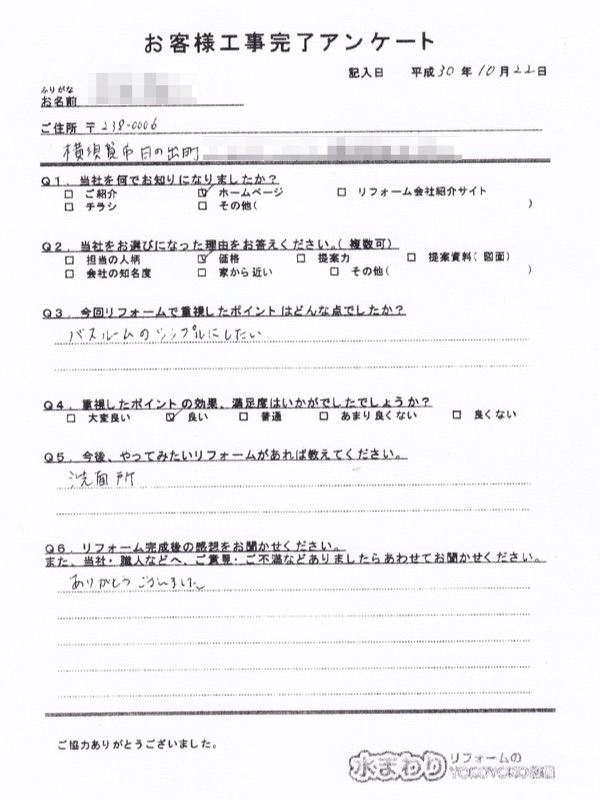 お客様工事完了アンケート
記入日 平成30年10月22日
ふりがな
お名前
ご住所 〒238-0006
横須賀市日の出町
Q1. 当社を何でお知りになりましたか?
□ ご紹介 ☑ ホームページ □ リフォーム会社紹介サイト
□ チラシ □ その他( )
Q2. 当社をお選びになった理由をお答えください。(複数可)
□ 担当の人柄 ☑ 価格 □ 提案力 □ 提案資料(図面)
□ 会社の知名度 □ 家から近い □ その他( )
Q3. 今回リフォームで重視したポイントはどんな点でしたか?
バスルームのシンプルにしたい
Q4. 重視したポイントの効果、満足度はいかがでしたでしょうか?
□ 大変良い ☑ 良い □ 普通 □ あまり良くない □ 良くない
Q5. 今後、やってみたいリフォームがあれば教えてください。
洗面所
Q6. リフォーム完成後の感想をお聞かせください。
また、当社・職人などへ、ご意見・ご不満などありましたらあわせてお聞かせください。
ありがとうございました
ご協力ありがとうございました。
水まわりリフォームの
YOKOYOKO設備